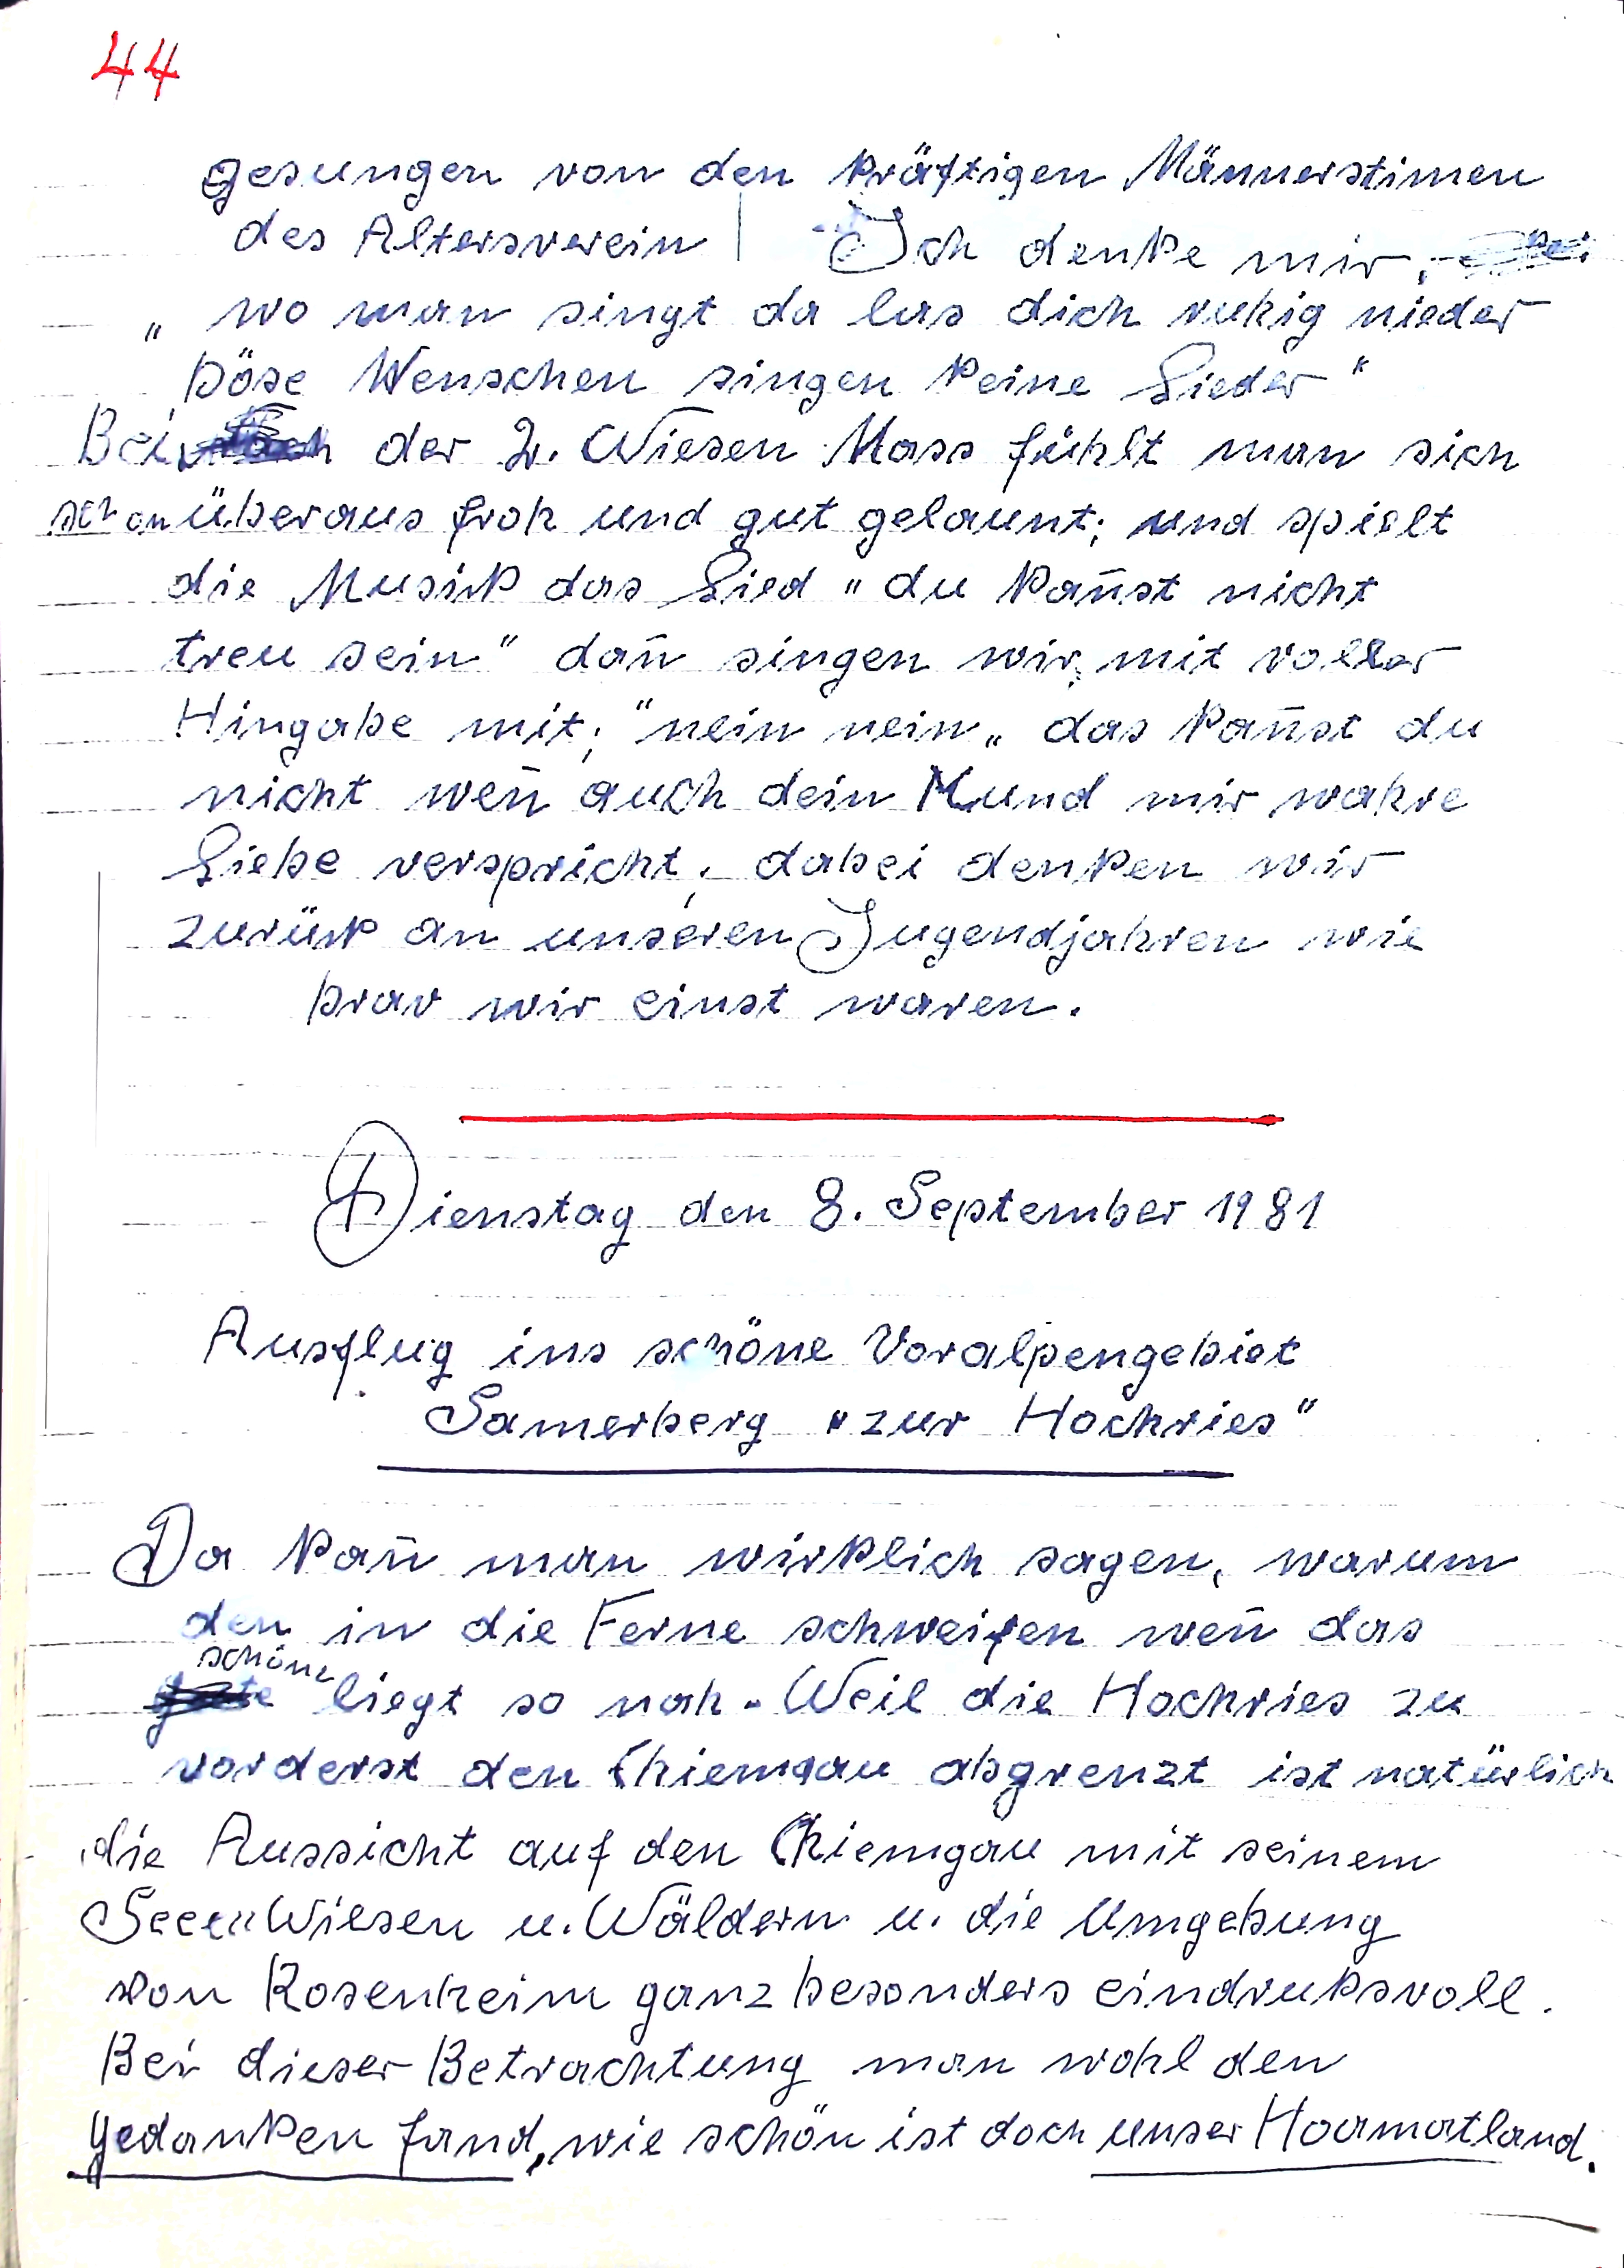 44
gesungen von den kräftigen Männerstimen
des Altersverein | Ich denke mir,
„ wo man singt da las dich ruhig nieder
böse Menschen singen keine Lieder "
Bei der 2. Wiesen Mass fühlt man sich
schon überaus froh und gut gelaunt; und spielt
die Musik das Lied " du kan̄st nicht
treu sein " dan̄ singen wir mit voller
Hingabe mit; "nein nein„ das kan̄st du
nicht wen̄ auch dein Mund mir wahre
Liebe verspricht, dabei denken wir
zurük an unseren Jugendjahren wie
brav wir einst waren.
Dienstag den 8. September 1981
Ausflug ins schöne Voralpengebiet
Samerberg "zur Hochries"
Da kan̄ man wirklich sagen, warum
den in die Ferne schweifen wen̄ das
schöne liegt so nah. Weil die Hochries zu
vorderst den Chiemgau abgrenzt ist natürlich
die Aussicht auf den Chiemgau mit seinem
Seeen Wiesen u. Wäldern u. die Umgebung
von Rosenheim ganz besonders eindruksvoll.
Bei dieser Betrachtung man wohl den
gedanken fand, wie schön ist doch unser Hoamatland.